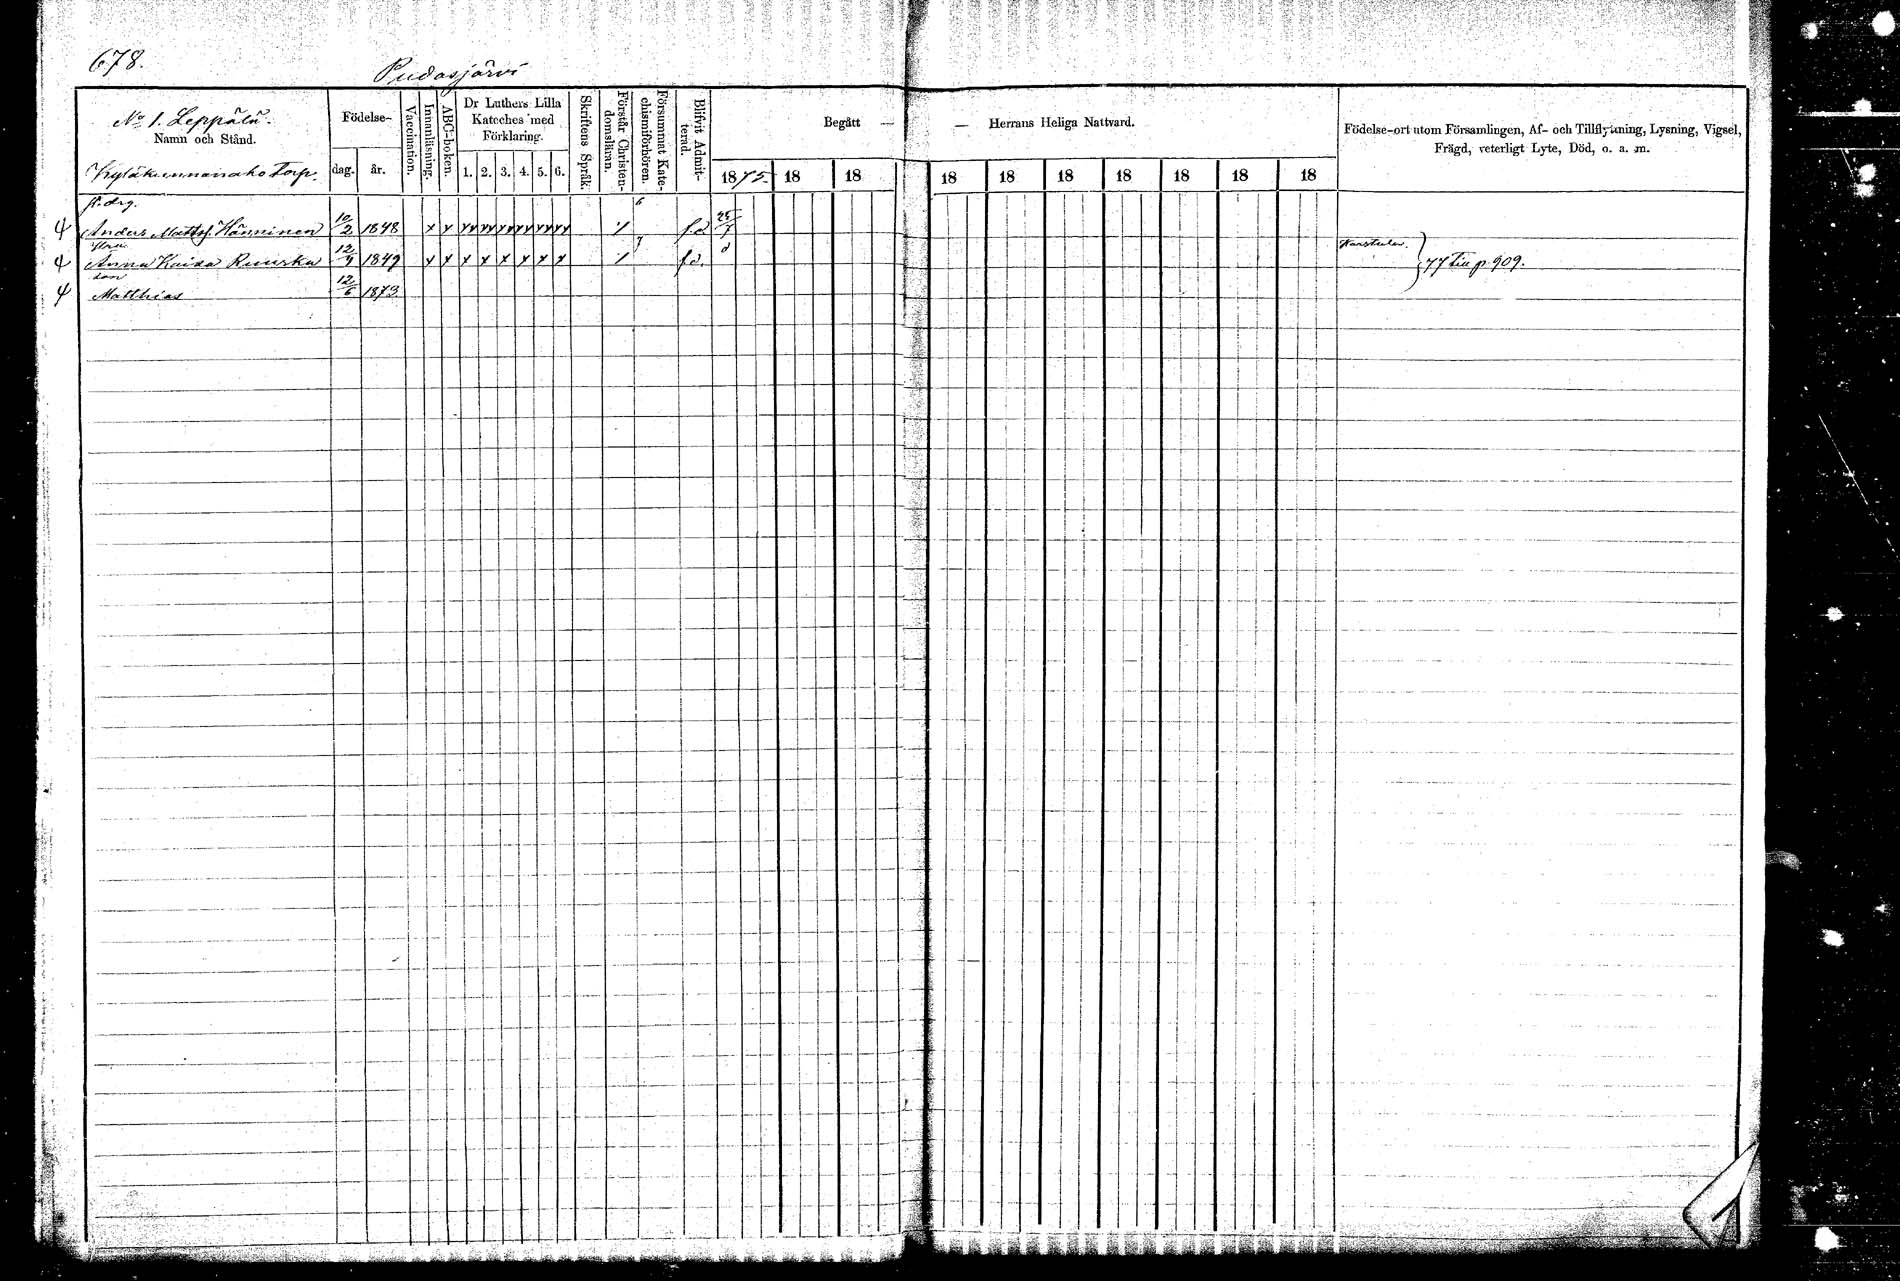 678.
Pudasjärvi
No 1. Leppälä.
Namn och Stånd.
Kyläkunnanaho Torp.
Födelse-
dag.
år.
Vaccination.
Innanläsning.
ABC-boken.
Dr Luthers Lilla
Kateches med
Förklaring.
1. 2. 3. 4. 5. 6.
Skriftens Språk.
Förstår Christen-
domsläran.
Försummat Kate-
chismiförhören.
Blifvit Admit-
terad.
Begått —
— Herrans Heliga Nattvard.
1875. 18 18
18 18 18 18 18 18 18
Födelse-ort utom Församlingen, Af- och Tillflyttning, Lysning, Vigsel,
Frägd, veterligt Lyte, Död, o. a. m.
Anders Matts. Hänninen 10/2 1848 x x f.d. 25/7
Anna Kaisa Ruuska 12/9 1849 x x x x x x x x f.d.
Karstula. 77 till p. 909.
son
Matthias 12/6 1873.